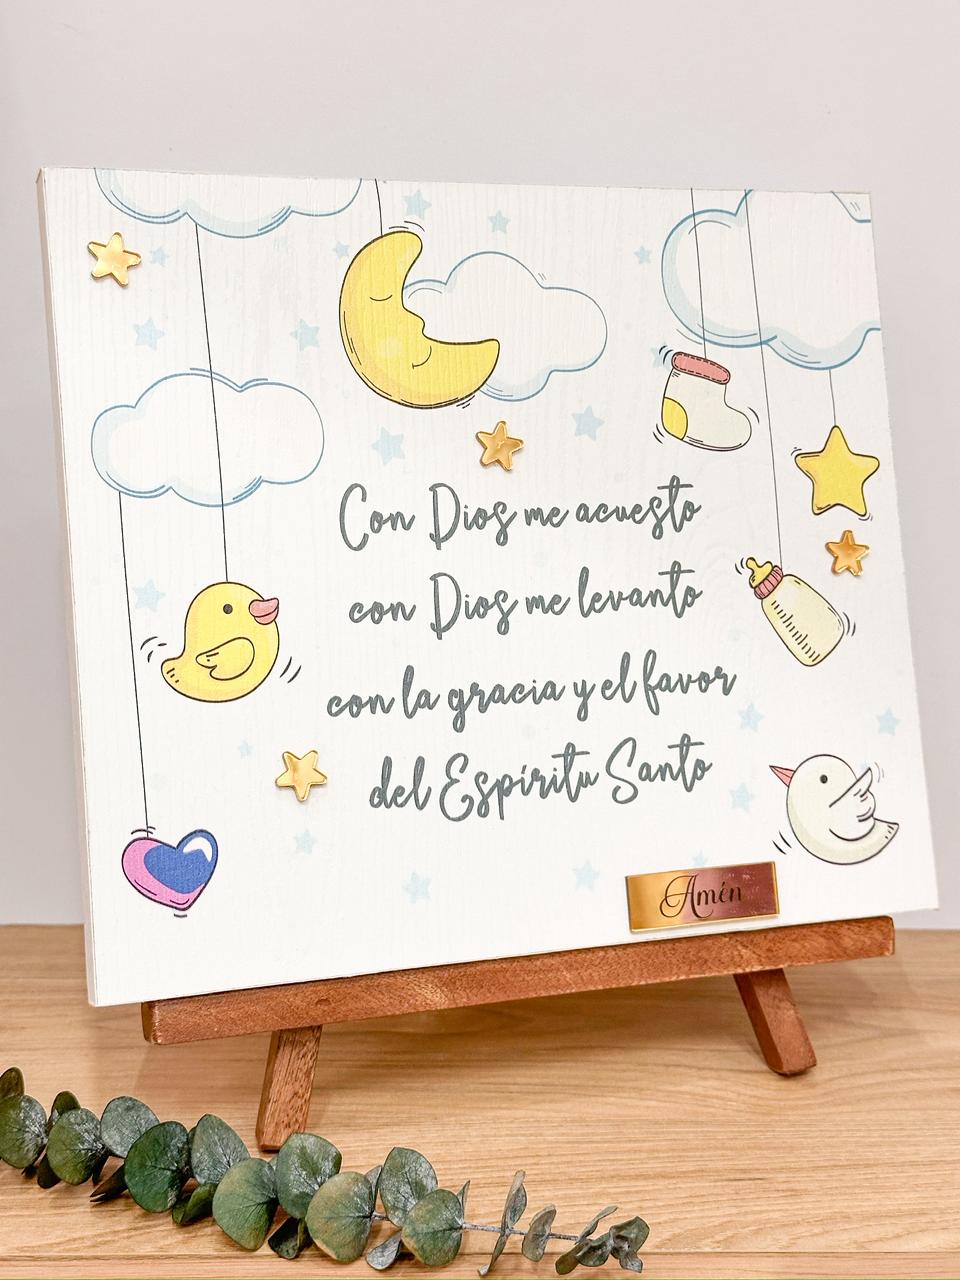 Con Dios me acuesto
con Dios me levanto
con la gracia y el favor
del Espíritu Santo
Amén